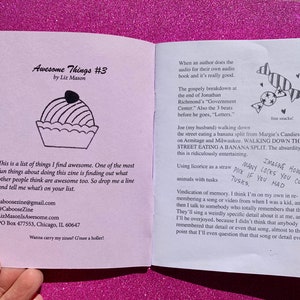 Awesome Things #3
by Liz Mason
This is a list of things I find awesome. One of the most
fun things about doing this zine is finding out what
other people think are awesome too. So drop me a line
and tell me what's on your list.
caboosezine@gmail.com
@CabooseZine
LizMasonIsAwesome.com
PO Box 477553, Chicago, IL 60647
Wanna carry my zines? Gimme a holler!
When an author does the
audio for their own audio
book and it's really good.
The gospely breakdown at
the end of Jonathan
Richmond's "Government
Center." Also the 3 beats
before he goes, "Letters."
free snacks!
Joe (my husband) walking down
the street eating a banana split from Margie's Candies
on Armitage and Milwaukee. WALKING DOWN TH
STREET EATING A BANANA SPLIT. The absurdity
this is ridiculously entertaining.
Using licorice as a straw
animals with tusks
IMAGINE HOW
MANY
YOU C
PICK IF YOU HAD
TUSKS.
Verification of memory. I think I'm on my own in re
membering a song or video from when I was a kid, an
then I talk to somebody who totally remembers that th
They'll sing a weirdly specific detail about it at me, an
I'll be overjoyed, because I didn't think that anybody
remembered that detail or even that song, almost to th
point that I'll even question that that song or detail ev